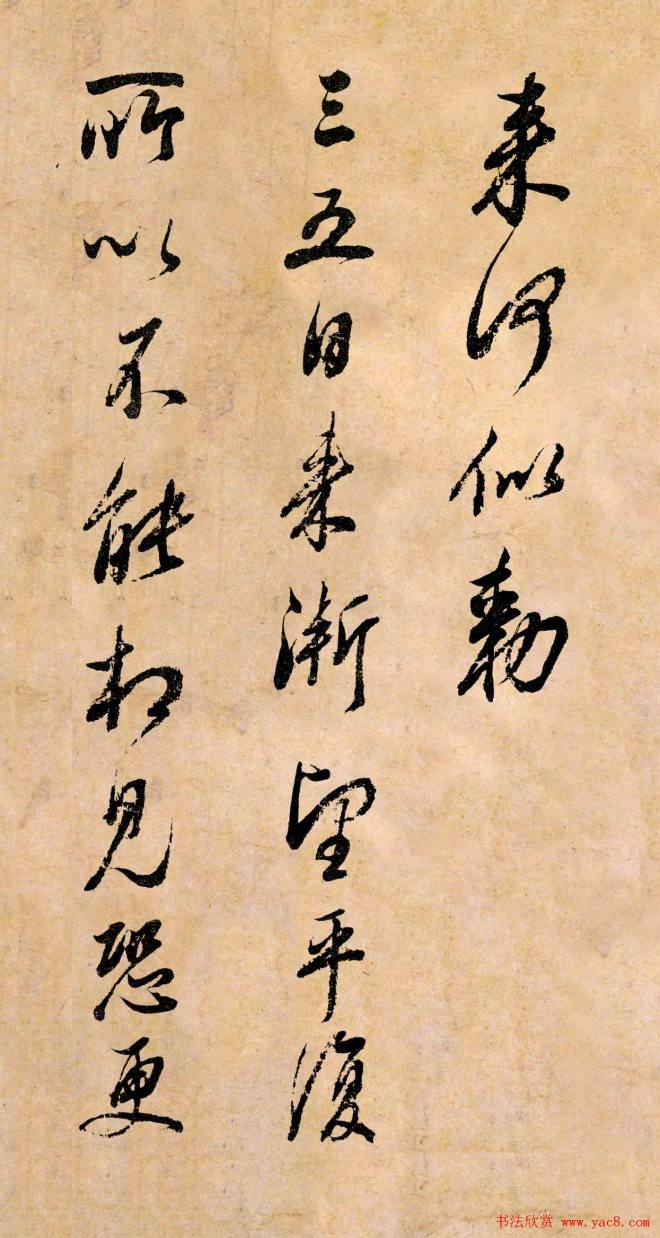 来得似勅
三五日来漸望平復
所以不能相見恐更
书法欣赏 www.yac8.com